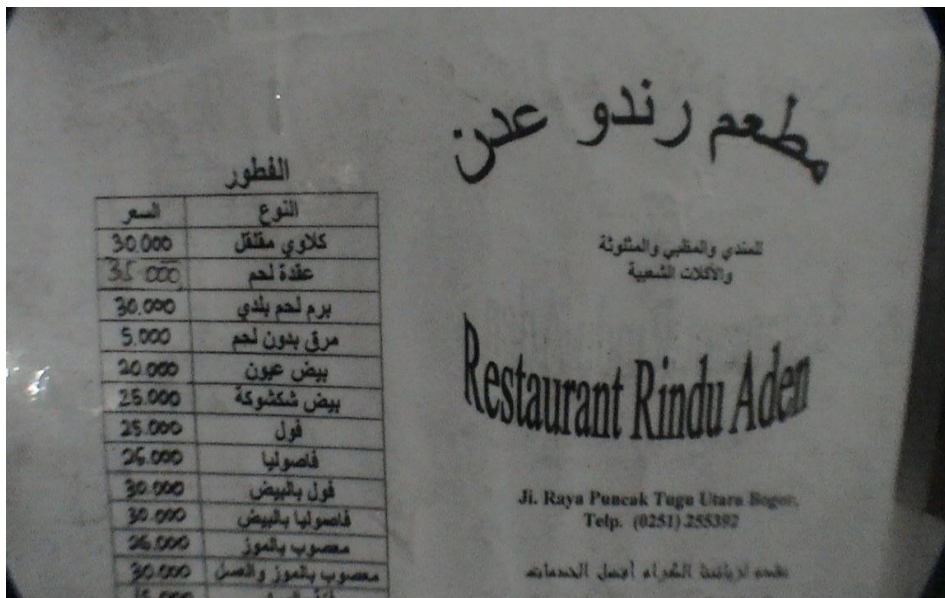 مطعم رندو عدن
للمندي والمظبي والمثلوثة
والأكلات الشعبية
Restaurant Rindu Aden
Jl. Raya Puncak Tugu Utara Bogor.
Telp. (0251) 255392
نقدم لزبائننا الكرام أفضل الخدمات
الفطور
النوع السعر
كلاوي مقلقل 30.000
عقدة لحم 35.000
برم لحم بلدي 30.000
مرق بدون لحم 5.000
بيض عيون 20.000
بيض شكشوكة 25.000
فول 25.000
فاصوليا 25.000
فول بالبيض 30.000
فاصوليا بالبيض 30.000
معصوب بالموز 25.000
معصوب بالموز والعسل 30.000